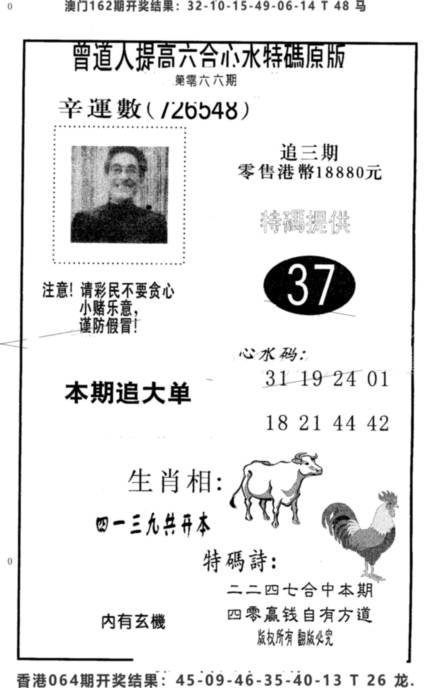 0
澳门162期开奖结果：32-10-15-49-06-14 T 48 马
曾道人提高六合心水特碼原版
第零六六期
辛運數(726548)
追三期
零售港幣18880元
特碼提供
37
注意！请彩民不要贪心
小赌乐意，
谨防假冒！
心水码：
31 19 24 01
本期追大单
18 21 44 42
生肖相：
四一三九共开本
特碼詩：
0
二二四七合中本期
四零赢钱自有方道
内有玄機
版权所有 翻版必究
香港064期开奖结果：45-09-46-35-40-13 T 26 龙.